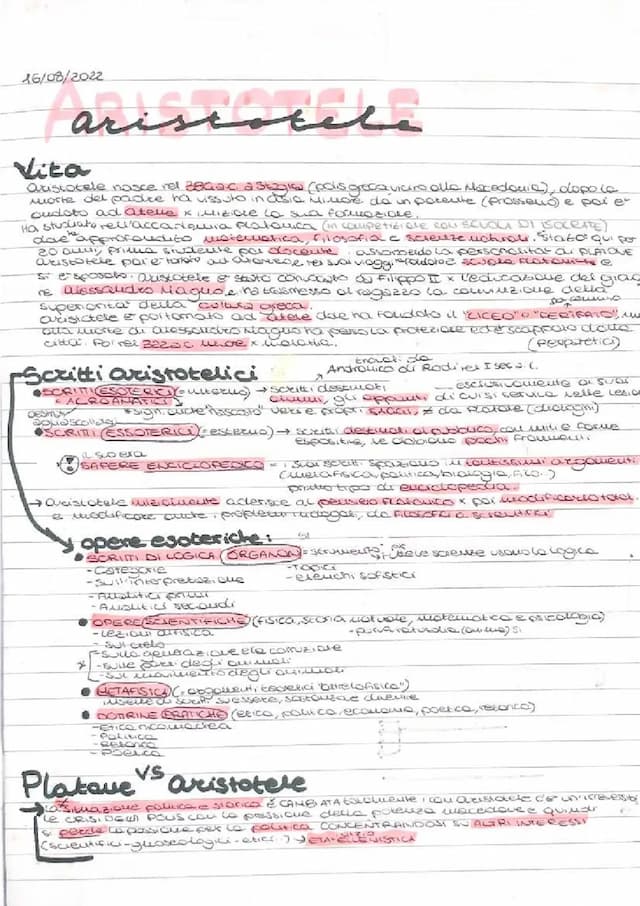 16/08/2022
ARISTOTELE
aristotele
Vita
Aristotele nasce nel 384 a.C. a Stagira (polis greca vicino alla Macedonia), dopo la
morte del padre ha vissuto in Asia Minore da un parente (Prosseno) e poi è
andato ad Atene x iniziare la sua formazione.
Ha studiato nell'accademia platonica (in competizione con SCUOLA DI ISOCRATE)
dove approfondito matematica, filosofia e scienze naturali. stato qui per
20 anni, prima studente poi docente, assorbendo la personalità di PLATONE
Aristotele poi è ad nei suoi viaggi scuole platoniche e
si è sposato. Aristotele è stato convocato da Filippo II x l'educazione del giovane
re Alessandro Magno e ha trasmesso al ragazzo la convinzione della
superiorità della cultura greca.
Aristotele è poi tornato ad Atene dove ha fondato il "LICEO" o "PERIPATO", ma
alla morte di Alessandro Magno ha perso la protezione ed è scappato dalla
città. Poi nel 322 a.C. muore x malattia. (peripatetici)
Scritti aristotelici
trovati da
Andronico di Rodi nel I sec a.C.
SCRITTI ESOTERICI (= interno) → scritti destinati esclusivamente ai suoi
= ACROAMATICI alunni, gli appunti di cui si serviva nelle lezioni
significa "nascosto" veri e propri ≠ da Platone (dialoghi)
SCRITTI ESSOTERICI (= esterno) → scritti destinati al pubblico con miti e forme
espositive, ne abbiamo pochi frammenti
il suo era
SAPERE ENCICLOPEDICO = i suoi scritti spaziano in tantissimi argomenti
(metafisica, politica, biologia, ...)
primo tipo di enciclopedia.
→ Aristotele inizialmente aderisce al pensiero platonico x poi modificarlo
e modificare anche i problemi da FILOSOFICI a SCIENTIFICI
opere esoteriche:
SCRITTI DI LOGICA ORGANON = strumento, le scienze usano la logica
- Categorie - Topici
- Sull'interpretazione - elenchi sofistici
- Analitici primi
- Analitici secondi
OPERE SCIENTIFICHE (fisica, storia naturale, matematica e psicologia)
- Lezioni di fisica - parva naturalia (anima)
- Sul cielo
- Sulla generazione e la corruzione
- Sulle parti degli animali
- Sul movimento degli animali
METAFISICA (argomenti teoretici "oltre la fisica")
insieme di scritti su essere, sostanza e divenire
DOTTRINE PRATICHE (etica, politica, economia, poetica, retorica)
- Etica nicomachea
- Politica
- Retorica
- Poetica
Platone VS Aristotele
La situazione politica e storica È CAMBIATA totalmente: con Aristotele
le CRISI DELLA POLIS con la pressione della potenza macedone e quindi
si perde la passione per la politica CONCENTRANDOSI SU ALTRI INTERESSI
(scientifici-gnoseologici-etici) → inizio ETÀ ELLENISTICA